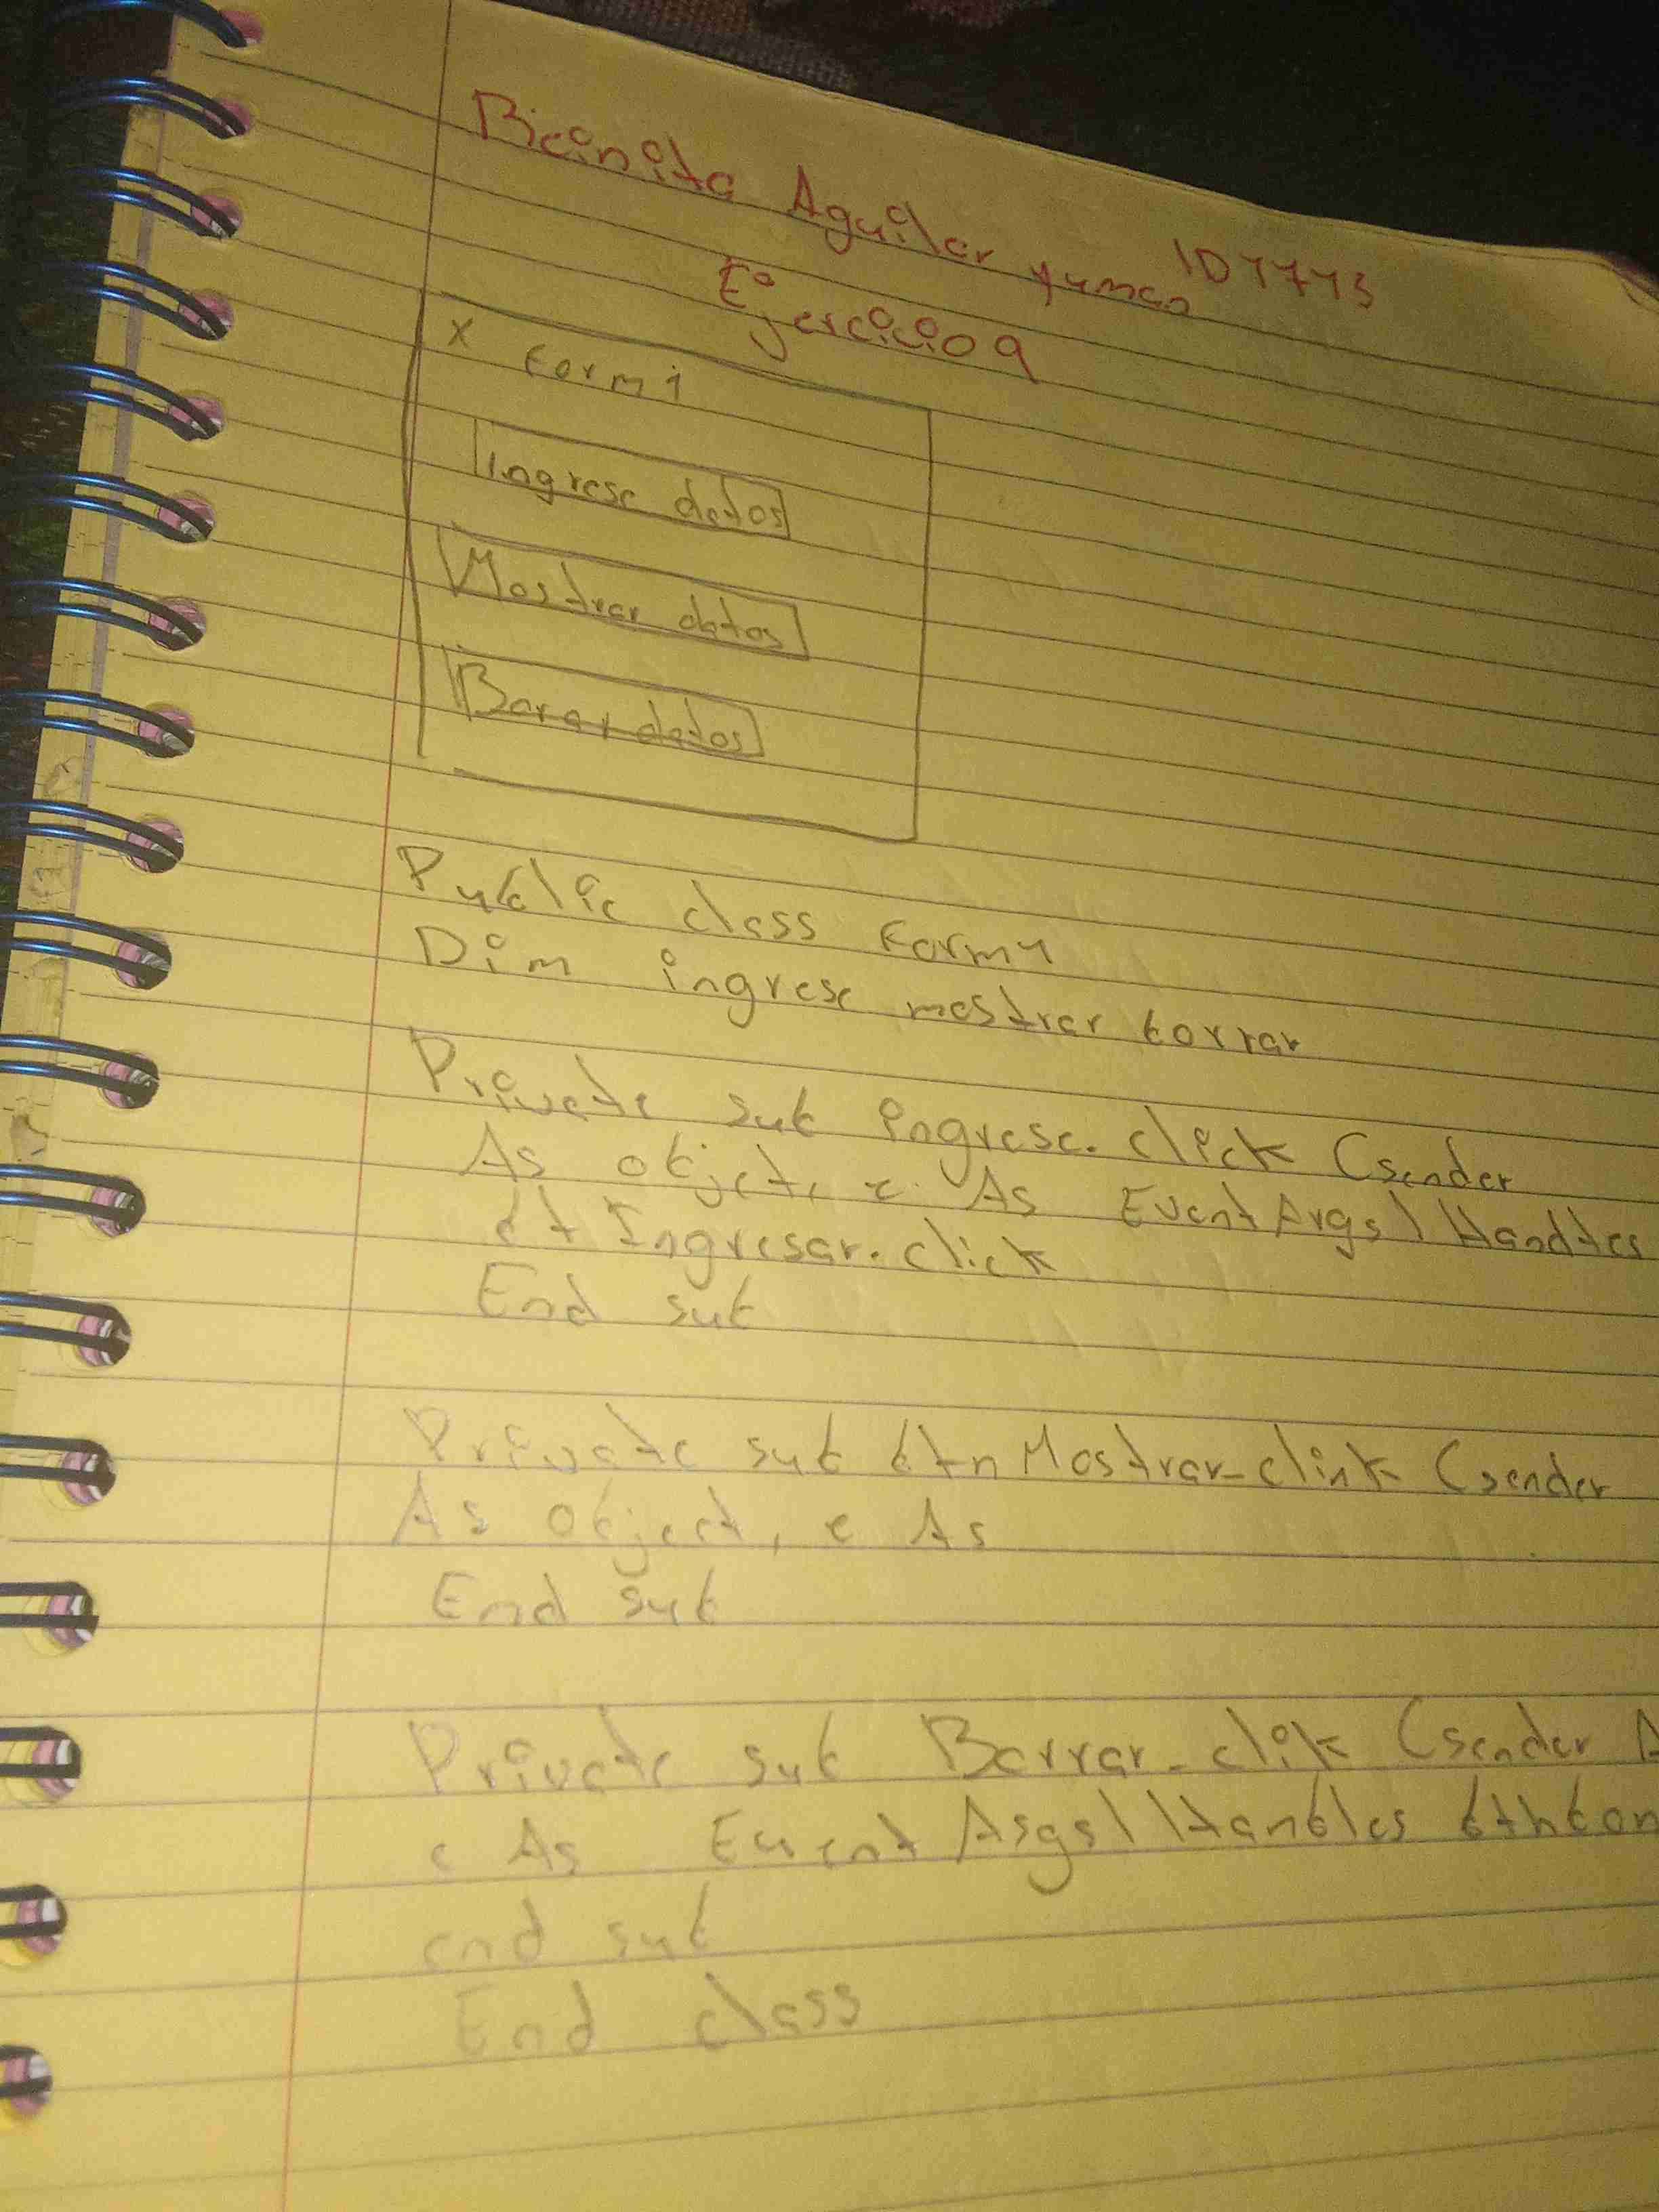 Bicinita Aguilar yuman
Ejercicio 9
x Form 1
Ingrese datos
Mostrar datos
Borar datos
Public class Form 1
Dim ingrese mostrar borrar
Private sub ingrese. click (sender
As object, e. As EventArgs) Handtes
bt Ingresar. click
End sub
Private sub btn Mostrar_clink (sender
As object, e As
End sub
Private sub Borrar_clik (sender A
e As Event Asgs) Hanbles
end sub
End class